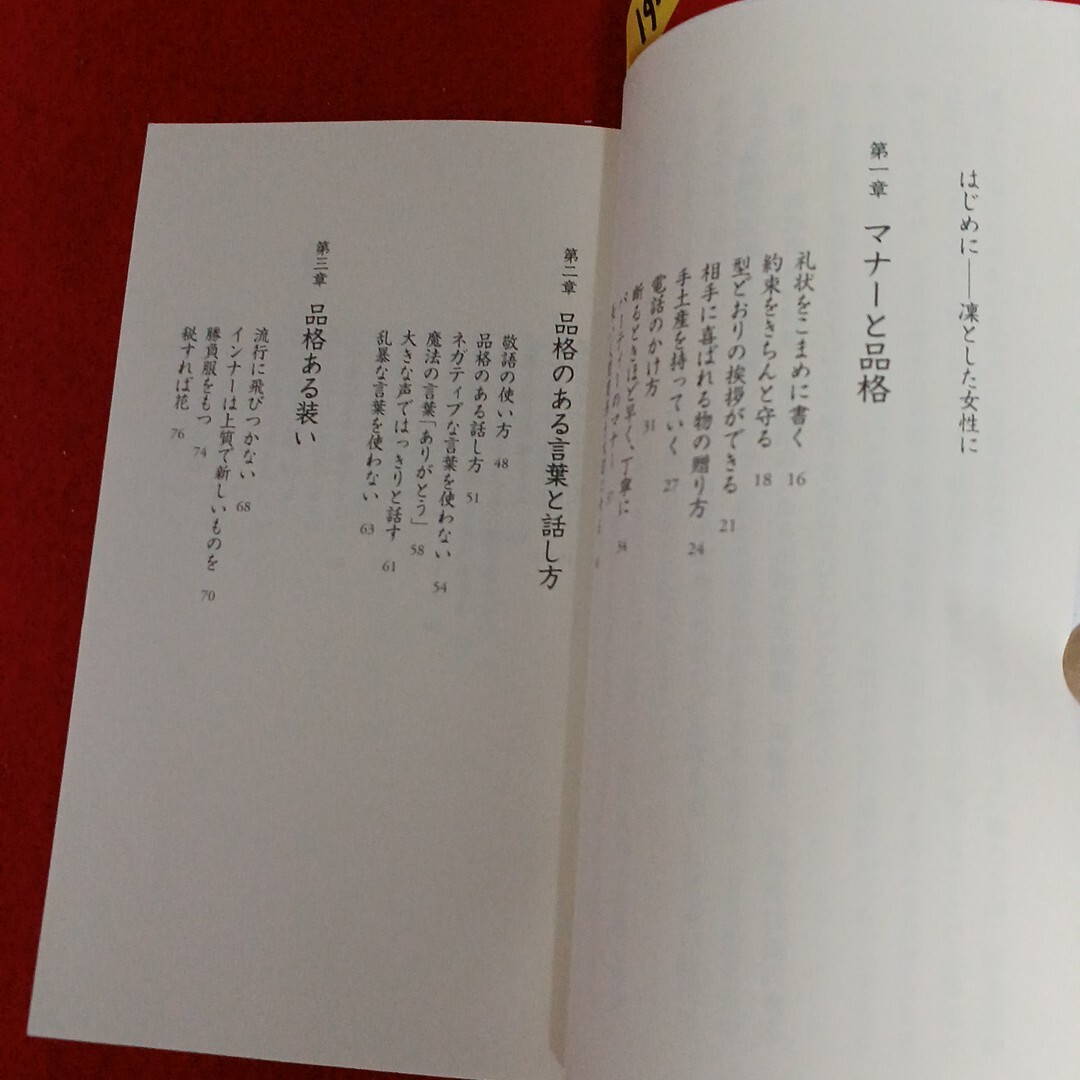 はじめに――凜とした女性に
第一章 マナーと品格
礼状をこまめに書く 16
約束をきちんと守る 18
型どおりの挨拶ができる 21
相手に喜ばれる物の贈り方 24
手土産を持っていく 27
電話のかけ方 31
断るときほど早く、丁寧に 34
パーティーのマナー 37
第二章 品格のある言葉と話し方
敬語の使い方 48
品格のある話し方 51
ネガティブな言葉を使わない 54
魔法の言葉「ありがとう」 58
大きな声ではっきりと話す 61
乱暴な言葉を使わない 63
第三章 品格ある装い
流行に飛びつかない 68
インナーは上質で新しいものを 70
勝負服をもつ 74
秘すれば花 76